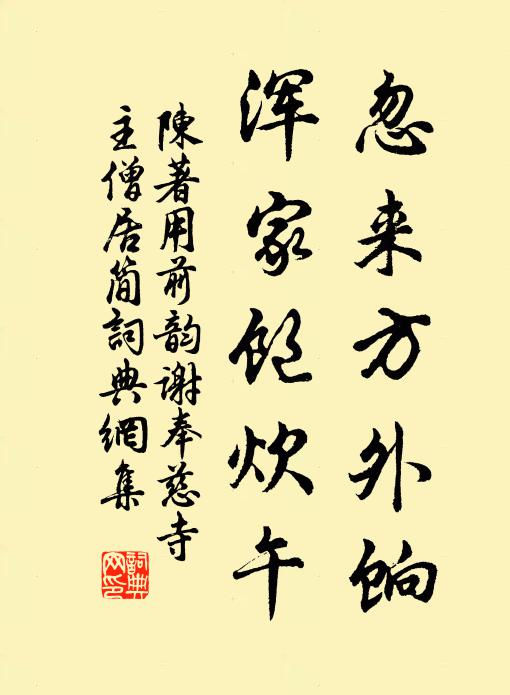 忽来方外饷
浑家饱炊午
陳著用前韵谢奉慈寺
主僧居简詞典網集
詞典
网印